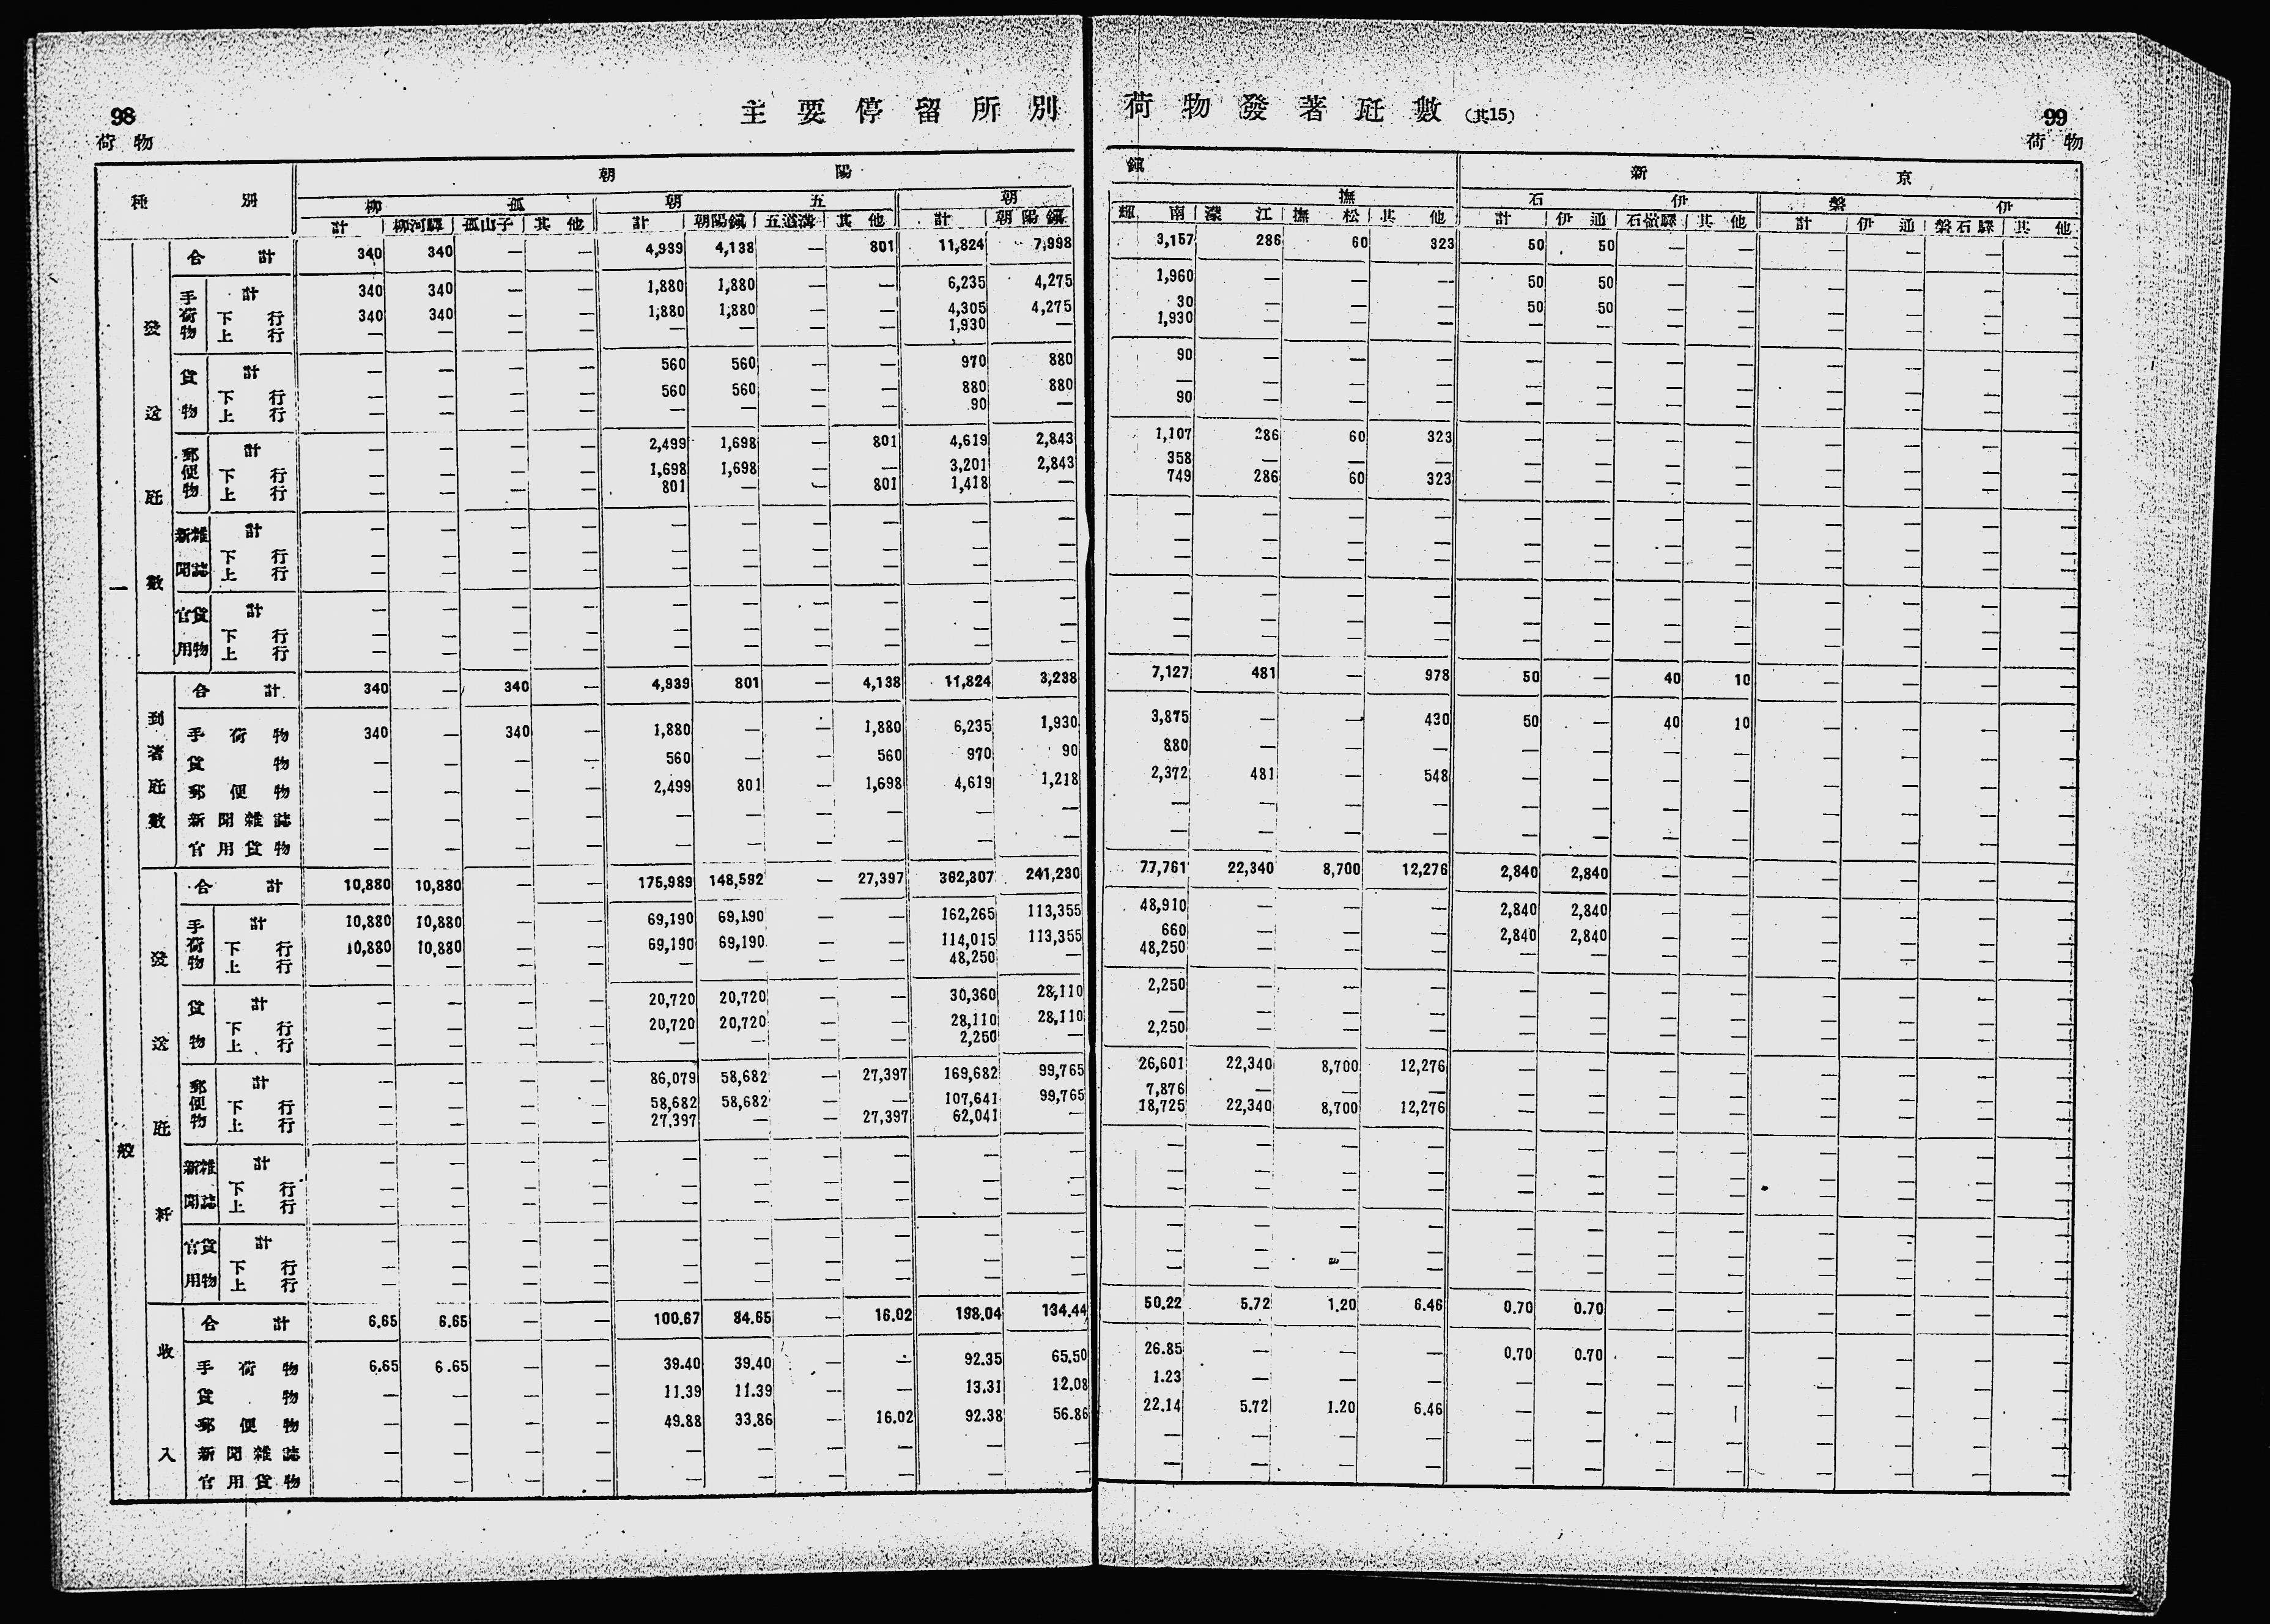 98
荷物
主要停留所別
荷物發著瓩數(其15)
99
荷物
種別 朝陽
鎭 新京
柳孤 朝五 朝
撫 石伊 磐伊
計 柳河驛 孤山子 其他 計 朝陽鎭 五道溝 其他 計 朝陽鎭
輝南 濛江 撫松 其他 計 伊通 石嶺驛 其他 計 伊通 磐石驛 其他
一般
發送瓩數
合計 340 340 — — 4,939 4,138 — 801 11,824 7,998 3,157 286 60 323 50 50 — — — — — —
手荷物 計 340 340 — — 1,880 1,880 — — 6,235 4,275 1,960 — — — 50 50 — — — — — —
下行 340 340 — — 1,880 1,880 — — 4,305 4,275 30 — — — 50 50 — — — — — —
上行 — — — — — — — — 1,930 — 1,930 — — — — — — — — — — —
貨物 計 — — — — 560 560 — — 970 880 90 — — — — — — — — — — —
下行 — — — — 560 560 — — 880 880 — — — — — — — — — — — —
上行 — — — — — — — — 90 — 90 — — — — — — — — — — —
郵便物 計 — — — — 2,499 1,698 — 801 4,619 2,843 1,107 286 60 323 — — — — — — — —
下行 — — — — 1,698 1,698 — — 3,201 2,843 358 — — — — — — — — — — —
上行 — — — — 801 — — 801 1,418 — 749 286 60 323 — — — — — — — —
新聞雜誌 計 — — — — — — — — — — — — — — — — — — — — — —
下行 — — — — — — — — — — — — — — — — — — — — — —
上行 — — — — — — — — — — — — — — — — — — — — — —
官用貨物 計 — — — — — — — — — — — — — — — — — — — — — —
下行 — — — — — — — — — — — — — — — — — — — — — —
上行 — — — — — — — — — — — — — — — — — — — — — —
到著瓩數
合計 340 — 340 — 4,939 801 — 4,138 11,824 3,238 7,127 481 — 978 50 — 40 10 — — — —
手荷物 340 — 340 — 1,880 — — 1,880 6,235 1,930 3,875 — — 430 50 — 40 10 — — — —
貨物 — — — — 560 — — 560 970 90 880 — — — — — — — — — — —
郵便物 — — — — 2,499 801 — 1,698 4,619 1,218 2,372 481 — 548 — — — — — — — —
新聞雜誌 — — — — — — — — — — — — — — — — — — — — — —
官用貨物 — — — — — — — — — — — — — — — — — — — — — —
發送瓩粁
合計 10,880 10,880 — — 175,989 148,592 — 27,397 362,307 241,230 77,761 22,340 8,700 12,276 2,840 2,840 — — — — — —
手荷物 計 10,880 10,880 — — 69,190 69,190 — — 162,265 113,355 48,910 — — — 2,840 2,840 — — — — — —
下行 10,880 10,880 — — 69,190 69,190 — — 114,015 113,355 660 — — — 2,840 2,840 — — — — — —
上行 — — — — — — — — 48,250 — 48,250 — — — — — — — — — — —
貨物 計 — — — — 20,720 20,720 — — 30,360 28,110 2,250 — — — — — — — — — — —
下行 — — — — 20,720 20,720 — — 28,110 28,110 — — — — — — — — — — — —
上行 — — — — — — — — 2,250 — 2,250 — — — — — — — — — — —
郵便物 計 — — — — 86,079 58,682 — 27,397 169,682 99,765 26,601 22,340 8,700 12,276 — — — — — — — —
下行 — — — — 58,682 58,682 — — 107,641 99,765 7,876 — — — — — — — — — — —
上行 — — — — 27,397 — — 27,397 62,041 — 18,725 22,340 8,700 12,276 — — — — — — — —
新聞雜誌 計 — — — — — — — — — — — — — — — — — — — — — —
下行 — — — — — — — — — — — — — — — — — — — — — —
上行 — — — — — — — — — — — — — — — — — — — — — —
官用貨物 計 — — — — — — — — — — — — — — — — — — — — — —
下行 — — — — — — — — — — — — — — — — — — — — — —
上行 — — — — — — — — — — — — — — — — — — — — — —
收入
合計 6.65 6.65 — — 100.67 84.65 — 16.02 198.04 134.44 50.22 5.72 1.20 6.46 0.70 0.70 — — — — — —
手荷物 6.65 6.65 — — 39.40 39.40 — — 92.35 65.50 26.85 — — — 0.70 0.70 — — — — — —
貨物 — — — — 11.39 11.39 — — 13.31 12.08 1.23 — — — — — — — — — — —
郵便物 — — — — 49.88 33.86 — 16.02 92.38 56.86 22.14 5.72 1.20 6.46 — — — — — — — —
新聞雜誌 — — — — — — — — — — — — — — — — — — — — — —
官用貨物 — — — — — — — — — — — — — — — — — — — — — —